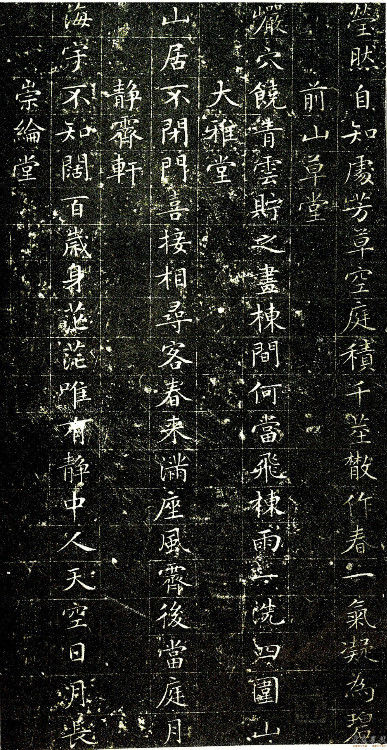 瑩然自知處芳草空庭積千差散作春一氣凝為碧
前山草堂
巖穴饒青雲貯之畫棟間何當飛棟雨一洗四圍山
大雅堂
山居不閉門喜接相尋客春來滿座風霽後當庭月
靜齋軒
海宇不知闊百歲身茫茫唯有靜中人天空日月長
崇綸堂